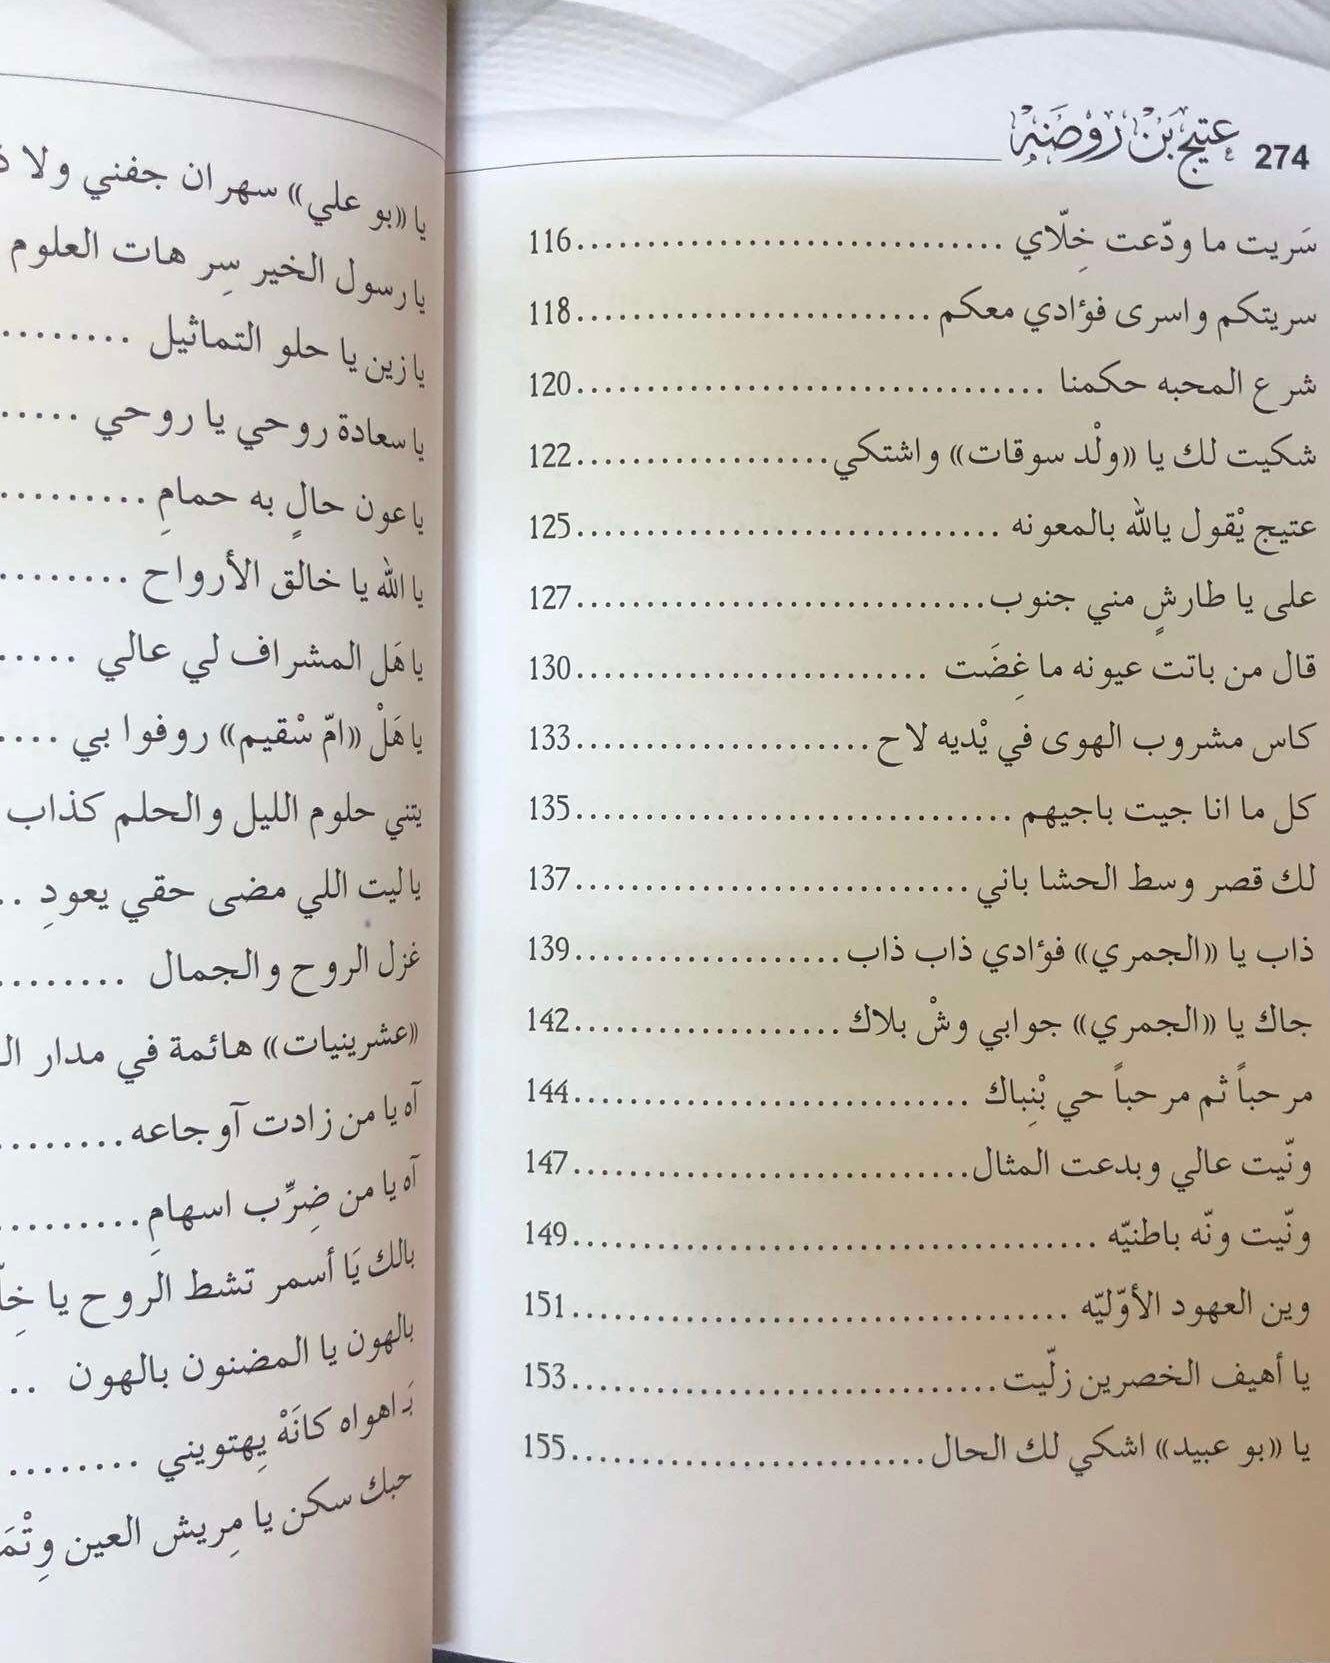 274 عتيج بن روضه
سَريت ما ودّعت خِلّاي ................................ 116
سريتكم واسرى فؤادي معكم ........................... 118
شرع المحبه حكمنا ................................... 120
شكيت لك يا «ولْد سوقات» واشتكي ................... 122
عتيج يْقول يالله بالمعونه ................................ 125
على يا طارشٍ مني جنوب ............................... 127
قال من باتت عيونه ما غِضَت ........................... 130
كاس مشروب الهوى في يْديه لاح ...................... 133
كل ما انا جيت باجيهم ................................. 135
لك قصر وسط الحشا باني .............................. 137
ذاب يا «الجمري» فؤادي ذاب ذاب .................... 139
جاك يا «الجمري» جوابي وشْ بلاك .................... 142
مرحباً ثم مرحباً حي بْنِباك .............................. 144
ونّيت عالي وبدعت المثال .............................. 147
ونّيت ونّه باطنيّه ........................................ 149
وين العهود الأوّليّه ...................................... 151
يا أهيف الخصرين زلّيت ................................ 153
يا «بو عبيد» اشكي لك الحال ........................... 155
يا «بو علي» سهران جفني ولا
يا رسول الخير سِر هات العلوم
يا زين يا حلو التماثيل .........
يا سعادة روحي يا روحي .....
يا عون حالٍ به حمامِ .........
يا الله يا خالق الأرواح ........
يا هَل المشراف لي عالي .....
يا هَلْ «امّ سْقيم» روفوا بي ....
يتني حلوم الليل والحلم كذاب
يا ليت اللي مضى حقي يعودِ ..
غزل الروح والجمال ........
«عشرينيات» هائمة في مدار
آه يا من زادت آوجاعه ........
آه يا من ضِرِّب اسهامِ .........
بالك يَا أسمر تشط الروح يا
بالهون يا المضنون بالهون ..
بَـ اهواه كانَهْ يِهتويني ........
حبك سكن يا مِريش العين